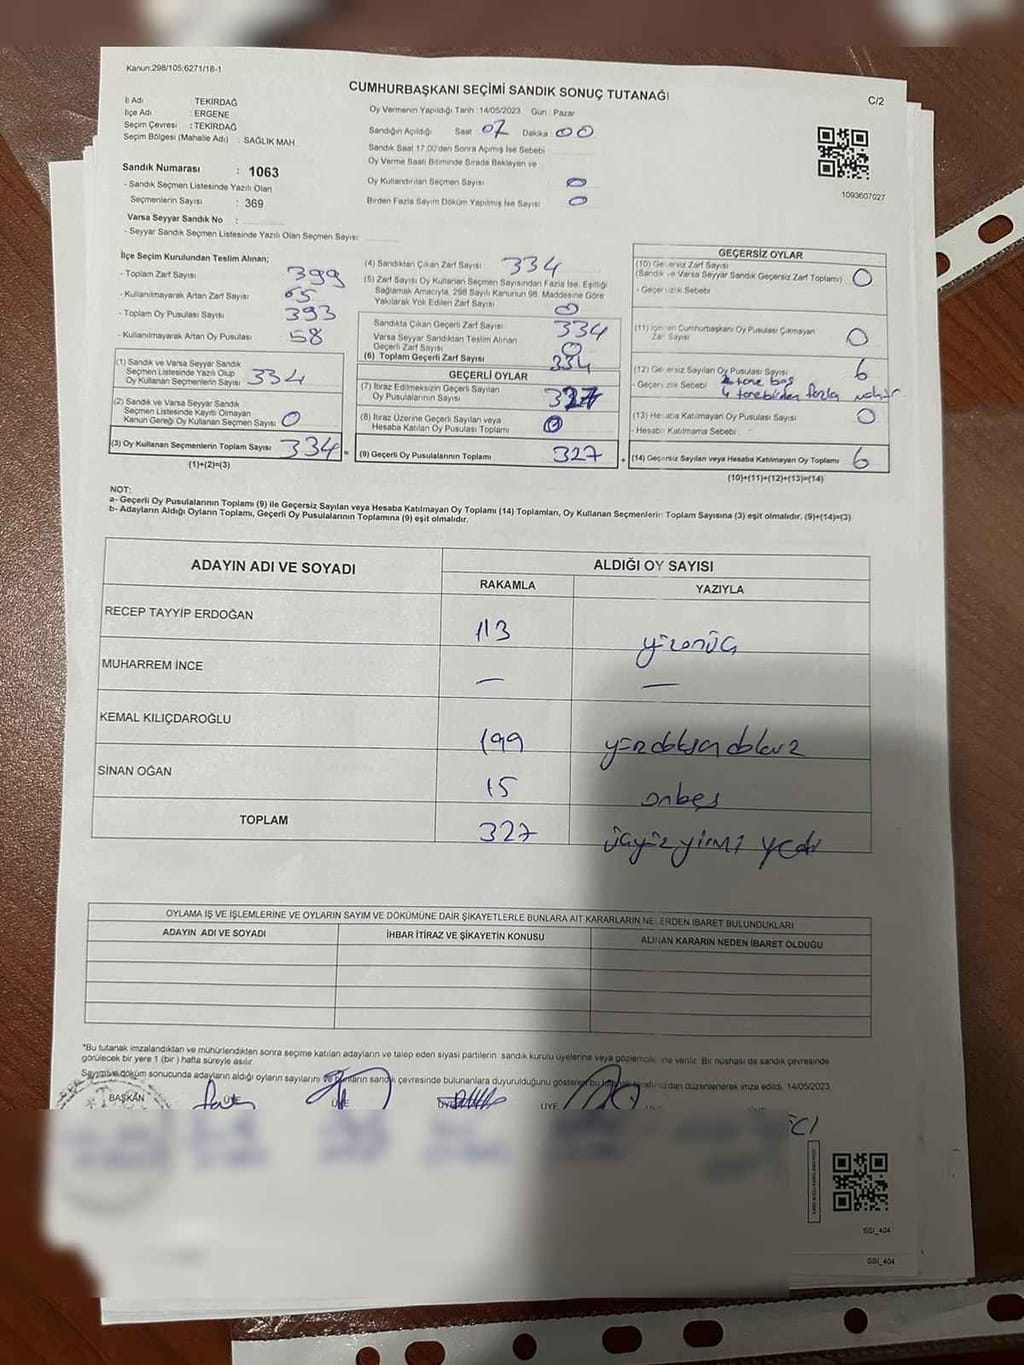 Kanun:298/105;6271/18-1
CUMHURBAŞKANI SEÇİMİ SANDIK SONUÇ TUTANAĞI
C/2
İl Adı : TEKİRDAĞ
İlçe Adı : ERGENE
Seçim Çevresi : TEKİRDAĞ
Seçim Bölgesi (Mahalle Adı) : SAĞLIK MAH
Oy Vermenin Yapıldığı Tarih : 14/05/2023 Gün : Pazar
Sandığın Açıldığı Saat 07 Dakika : 00
Sandık Saat 17.00'den Sonra Açılmış İse Sebebi
Oy Verme Saati Bitiminde Sırada Bekleyen ve
Oy Kullandırılan Seçmen Sayısı 0
Birden Fazla Sayım Döküm Yapılmış İse Sayısı 0
1093607027
Sandık Numarası : 1063
- Sandık Seçmen Listesinde Yazılı Olan
Seçmenlerin Sayısı : 369
Varsa Seyyar Sandık No :
- Seyyar Sandık Seçmen Listesinde Yazılı Olan Seçmen Sayısı:
İlçe Seçim Kurulundan Teslim Alınan;
- Toplam Zarf Sayısı 399
- Kullanılmayarak Artan Zarf Sayısı 65
- Toplam Oy Pusulası Sayısı 393
- Kullanılmayarak Artan Oy Pusulası 58
(1) Sandık ve Varsa Seyyar Sandık
Seçmen Listesinde Yazılı Olup
Oy Kullanan Seçmenlerin Sayısı 334
(2) Sandık ve Varsa Seyyar Sandık
Seçmen Listesinde Kayıtlı Olmayan
Kanun Gereği Oy Kullanan Seçmen Sayısı 0
(3) Oy Kullanan Seçmenlerin Toplam Sayısı 334 =
(1)+(2)=(3)
(4) Sandıktan Çıkan Zarf Sayısı 334
(5) Zarf Sayısı Oy Kullanan Seçmen Sayısından Fazla İse, Eşitliği
Sağlamak Amacıyla, 298 Sayılı Kanunun 98. Maddesine Göre
Yakılarak Yok Edilen Zarf Sayısı 0
Sandıkta Çıkan Geçerli Zarf Sayısı 334
Varsa Seyyar Sandıktan Teslim Alınan
Geçerli Zarf Sayısı 0
(6) Toplam Geçerli Zarf Sayısı 334
GEÇERLİ OYLAR
(7) İtiraz Edilmeksizin Geçerli Sayılan
Oy Pusulalarının Sayısı 327
(8) İtiraz Üzerine Geçerli Sayılan veya
Hesaba Katılan Oy Pusulası Toplamı 0
(9) Geçerli Oy Pusulalarının Toplamı 327
GEÇERSİZ OYLAR
(10) Geçersiz Zarf Sayısı
(Sandık ve Varsa Seyyar Sandık Geçersiz Zarf Toplamı) 0
- Geçersizlik Sebebi
(11) İçinden Cumhurbaşkanı Oy Pusulası Çıkmayan
Zarf Sayısı 0
(12) Geçersiz Sayılan Oy Pusulası Sayısı 6
- Geçersizlik Sebebi tane boş
4 tane birden fazla mühür
(13) Hesaba Katılmayan Oy Pusulası Sayısı 0
- Hesaba Katılmama Sebebi
(14) Geçersiz Sayılan veya Hesaba Katılmayan Oy Toplamı 6
(10)+(11)+(12)+(13)=(14)
NOT:
a- Geçerli Oy Pusulalarının Toplamı (9) ile Geçersiz Sayılan veya Hesaba Katılmayan Oy Toplamı (14) Toplamları, Oy Kullanan Seçmenlerin Toplam Sayısına (3) eşit olmalıdır. (9)+(14)=(3)
b- Adayların Aldığı Oyların Toplamı, Geçerli Oy Pusulalarının Toplamına (9) eşit olmalıdır.
ADAYIN ADI VE SOYADI ALDIĞI OY SAYISI
RAKAMLA YAZIYLA
RECEP TAYYİP ERDOĞAN 113 yüzonüç
MUHARREM İNCE — —
KEMAL KILIÇDAROĞLU 199 yüzdoksandokuz
SİNAN OĞAN 15 onbeş
TOPLAM 327 üçyüz yirmi yedi
OYLAMA İŞ VE İŞLEMLERİNE VE OYLARIN SAYIM VE DÖKÜMÜNE DAİR ŞİKAYETLERLE BUNLARA AİT KARARLARIN NELERDEN İBARET BULUNDUKLARI
ADAYIN ADI VE SOYADI İHBAR İTİRAZ VE ŞİKAYETİN KONUSU ALINAN KARARIN NEDEN İBARET OLDUĞU
*Bu tutanak imzalandıktan ve mühürlendikten sonra seçime katılan adayların ve talep eden siyasi partilerin sandık kurulu üyelerine veya gözlemcilerine verilir. Bir nüshası da sandık çevresinde
görülecek bir yere 1 (bir) hafta süreyle asılır.
Sayım ve döküm sonucunda adayların aldığı oyların sayılarını ve bunların sandık çevresinde bulunanlara duyurulduğunu gösteren bu tutanak tarafımızdan düzenlenerek imza edildi. 14/05/2023
BAŞKAN ÜYE ÜYE ÜYE ÜYE
SSI_404
SSI_404